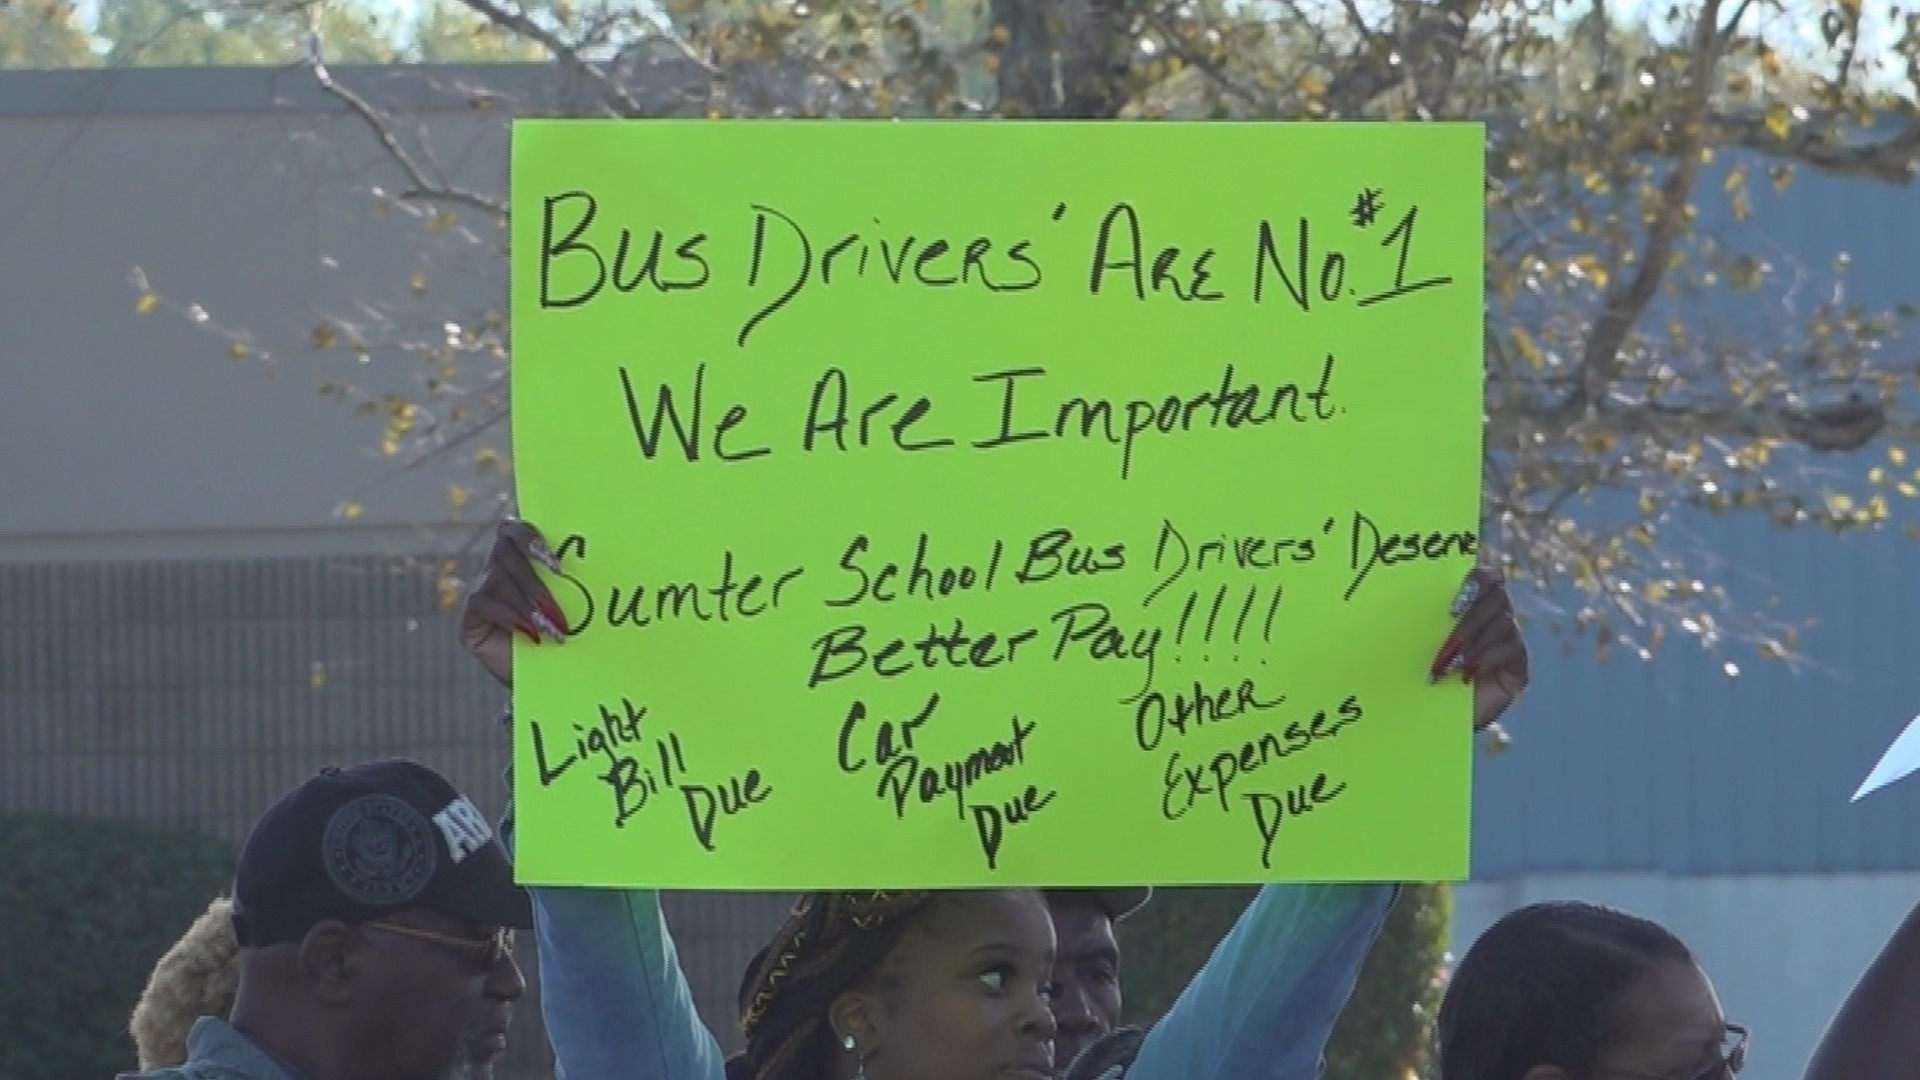 Bus Drivers' Are No.#1
We Are Important.
Sumter School Bus Drivers' Deserve
Better Pay!!!!
Light
Bill
Due
Car
Payment
Due
Other
Expenses
Due